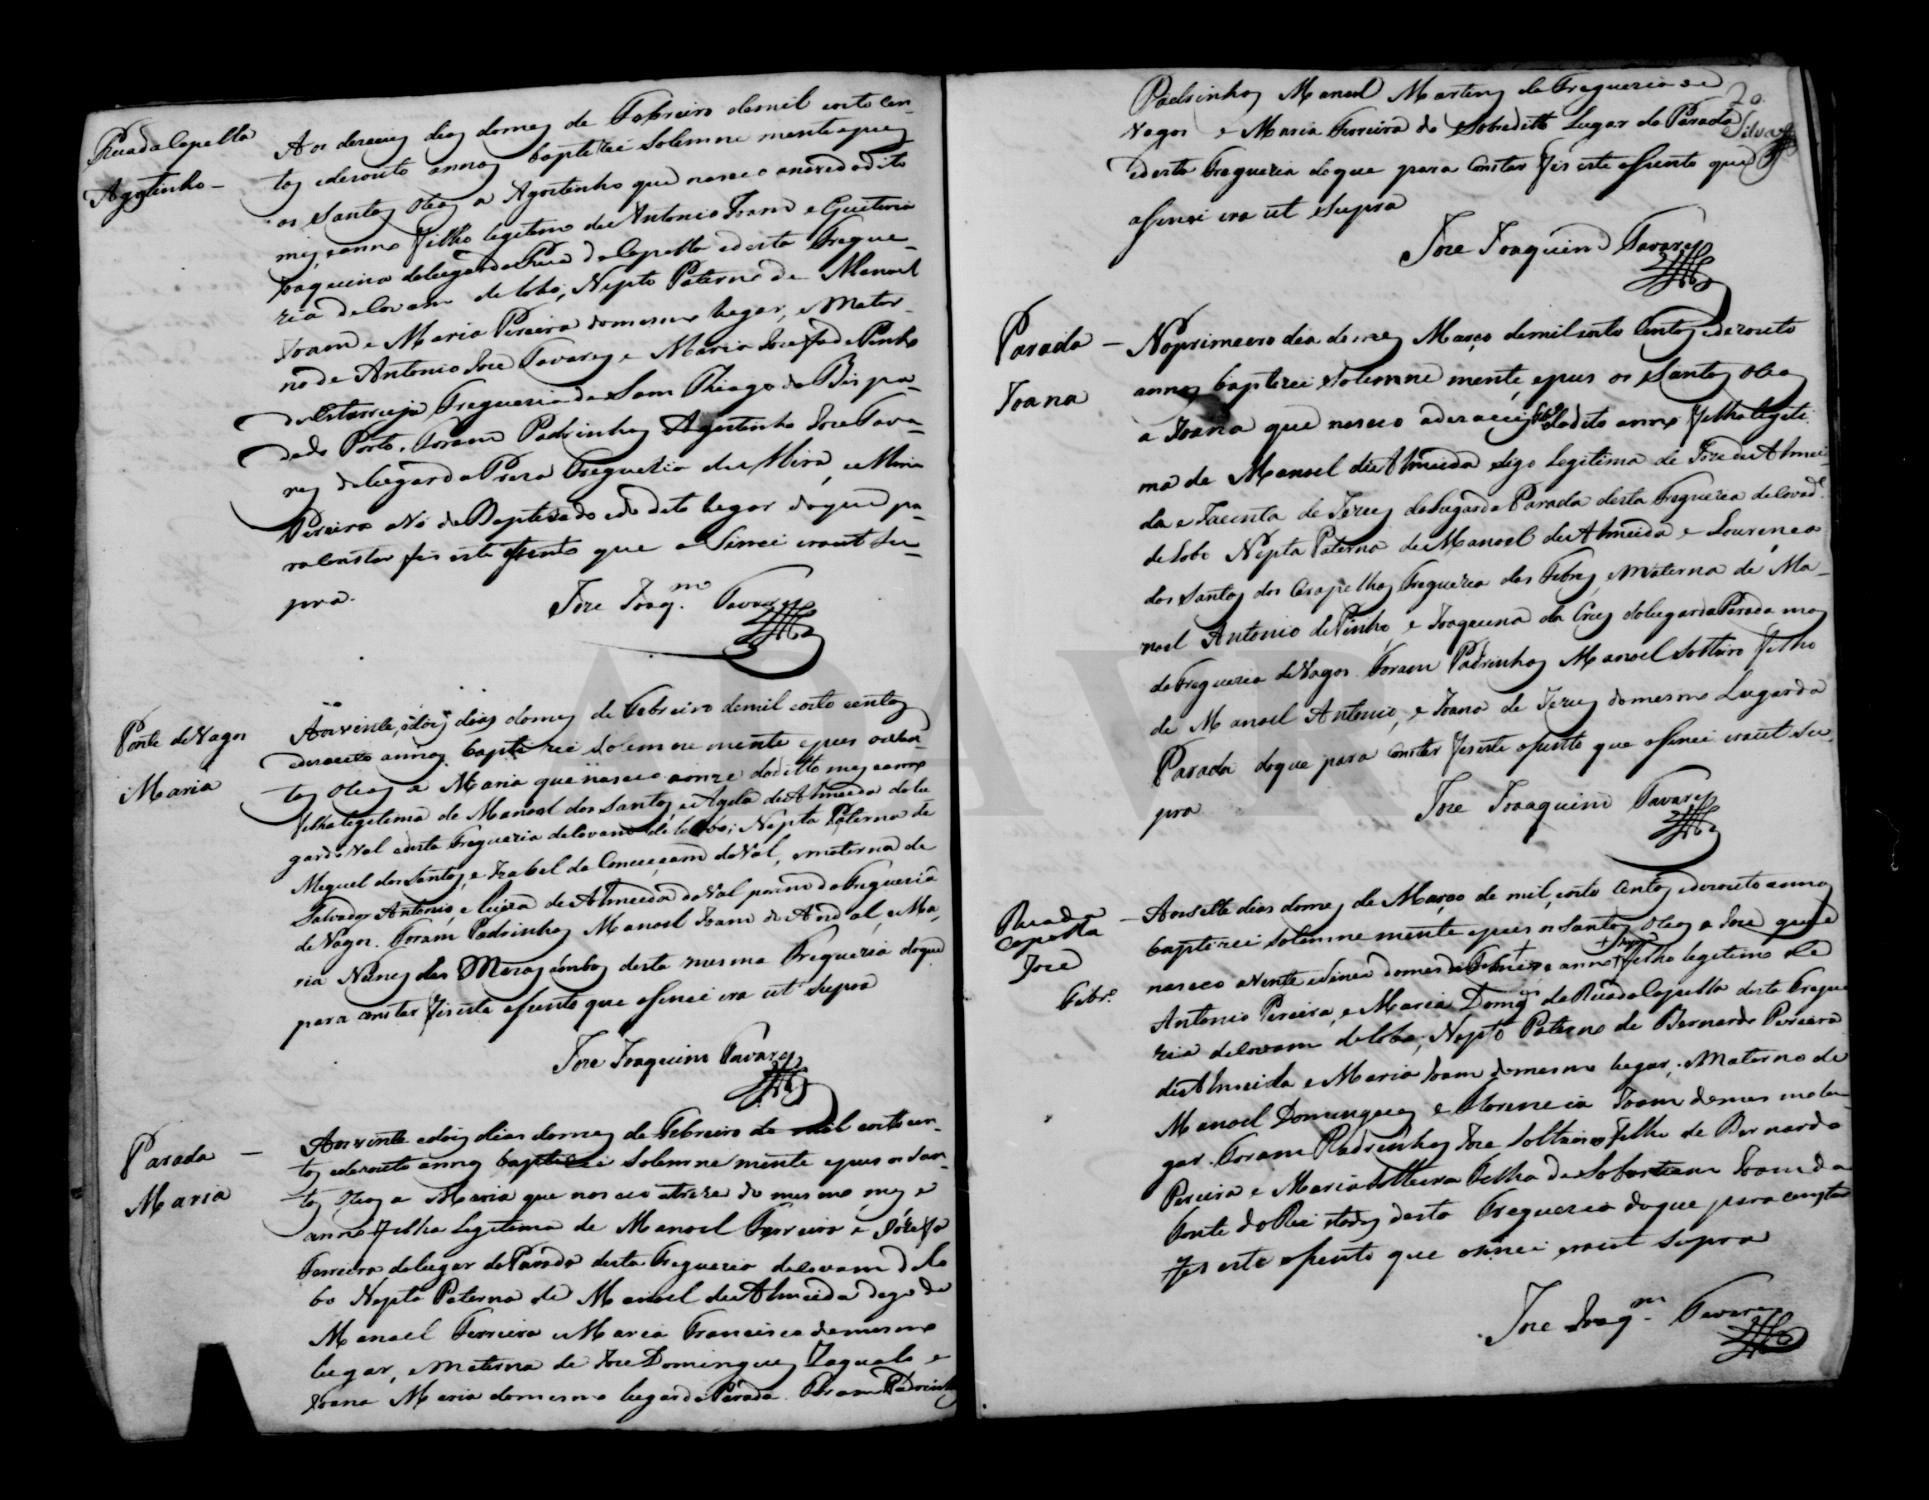 Rua da Capella
Agostinho
Aos dezaceis dias do mez de Febreiro de mil oito cen-
tos e dezouto annos baptizei solemnemente e puz
os Santos Oleos a Agostinho que nasceo a nove do dito
mez e anno filho legitimo de Antonio Joam e Guiteria
Joaquina do lugar da Rua da Capella e desta Fregue-
zia de Covam de Lobo, Nepto Paterno de Manoel
Joam e Maria Pereira do mesmo lugar, e Mater-
no de Antonio Jose Tavares e Maria Josefa de Pinho
de Estarreja Freguezia de Sam Thiago do Bispa-
do do Porto. Foram Padrinhos Agostinho Jose Tava-
res do lugar da Preza Freguezia de Mira, e Maria
Pereira Avó do Baptizado e do dito lugar do que pa-
ra constar fis este asento que asinei era ut su-
pra.
Jose Joaq.m Tavares
Ponte de Vagos
Maria
Aos vinte e dois dias do mez de Febreiro de mil oito centos
e dezouto annos baptizei solemnemente e puz os San-
tos Oleos a Maria que nasceo a onze do ditto mez e anno
filha legitima de Manoel dos Santos, e Agda de Almeida do lu-
gar do Val e desta Freguezia de Covam de Lobo; Nepta Paterna de
Miguel dos Santos, e Izabel da Conceiçam do Val, e materna de
Salvador Antonio, e Luiza de Almeida do Val da Freguezia
de Vagos. Foram Padrinhos Manoel Joam de Andal, e Ma-
ria Nunes das Mesas ambos desta mesma Freguezia do que
para constar fis este asento que asinei era ut supra
Jose Joaquim Tavares
Parada
Maria
Aos vinte e dois dias do mez de Febreiro de mil oito cen-
tos e dezouto annos baptizei solemnemente e puz os San-
tos Oleos a Maria que nasceo a treze do mesmo mez e
anno filha legitima de Manoel Ferreira e Jozefa
Ferreira do lugar da Parada desta Freguezia de Covam de Lo-
bo Nepta Paterna de Manoel de Almeida digo de
Manoel Ferreira e Maria Francisca do mesmo
lugar, e Materna de Jose Domingues e
Joana Maria do mesmo lugar da Parada. Foram Padrinhos
20
Silva
Padrinhos Manoel Martins da Freguezia de
Vagos e Maria Ferreira do sobreditto Lugar da Parada
e desta Freguezia do que para constar fis este asento que
asinei era ut supra
Jose Joaquim Tavares
Parada
Joana
No primeiro dia do mez Março de mil oito centos e dezouto
annos baptizei solemnemente, e puz os Santos Oleos
a Joana que nasceo a dezaceis do dito anno filha legiti-
ma de Manoel de Almeida digo legitima de Jose de Almei-
da e Jacinta de Jezus do lugar da Parada desta Freguezia de Covão
de Lobo Nepta Paterna de Manoel de Almeida e Lourença
dos Santos dos Carapelhos Freguezia das Febres, e materna de Ma-
noel Antonio de Pinho, e Joaquina da Cruz do lugar da Parada mas
da Freguezia de Vagos. Foram Padrinhos Manoel solteiro filho
de Manoel Antonio, e Joana de Jezus do mesmo Lugar da
Parada do que para constar fis este asento que asinei era ut su-
pra
Jose Joaaquim Tavares
Rua da
Capella
Jose
Febr.o
Aos sette dias do mez de Março de mil, oito centos e dezouto annos
baptizei solemnemente e puz os Santos Oleos a Jose que
nasceo a vinte e sinco do mes de Febreiro e anno filho legitimo de
Antonio Pereira, e Maria Domg.s da Rua da Capella desta Fregue-
zia de Covam de Lobo; Nepto Paterno de Bernardo Pereira
de Almeida e Maria Joam do mesmo lugar; Materno de
Manoel Domingues e Florencia Joam do mesmo lu-
gar. Foram Padrinhos Jose solteiro filho de Bernardo
Pereira e Maria solteira Filha de Sebastiam Joam da
Fonte do Rei todos desta Freguezia do que para constar
fis este asento que asinei era ut supra
Jose Joaq.m Tavares
ADAVR